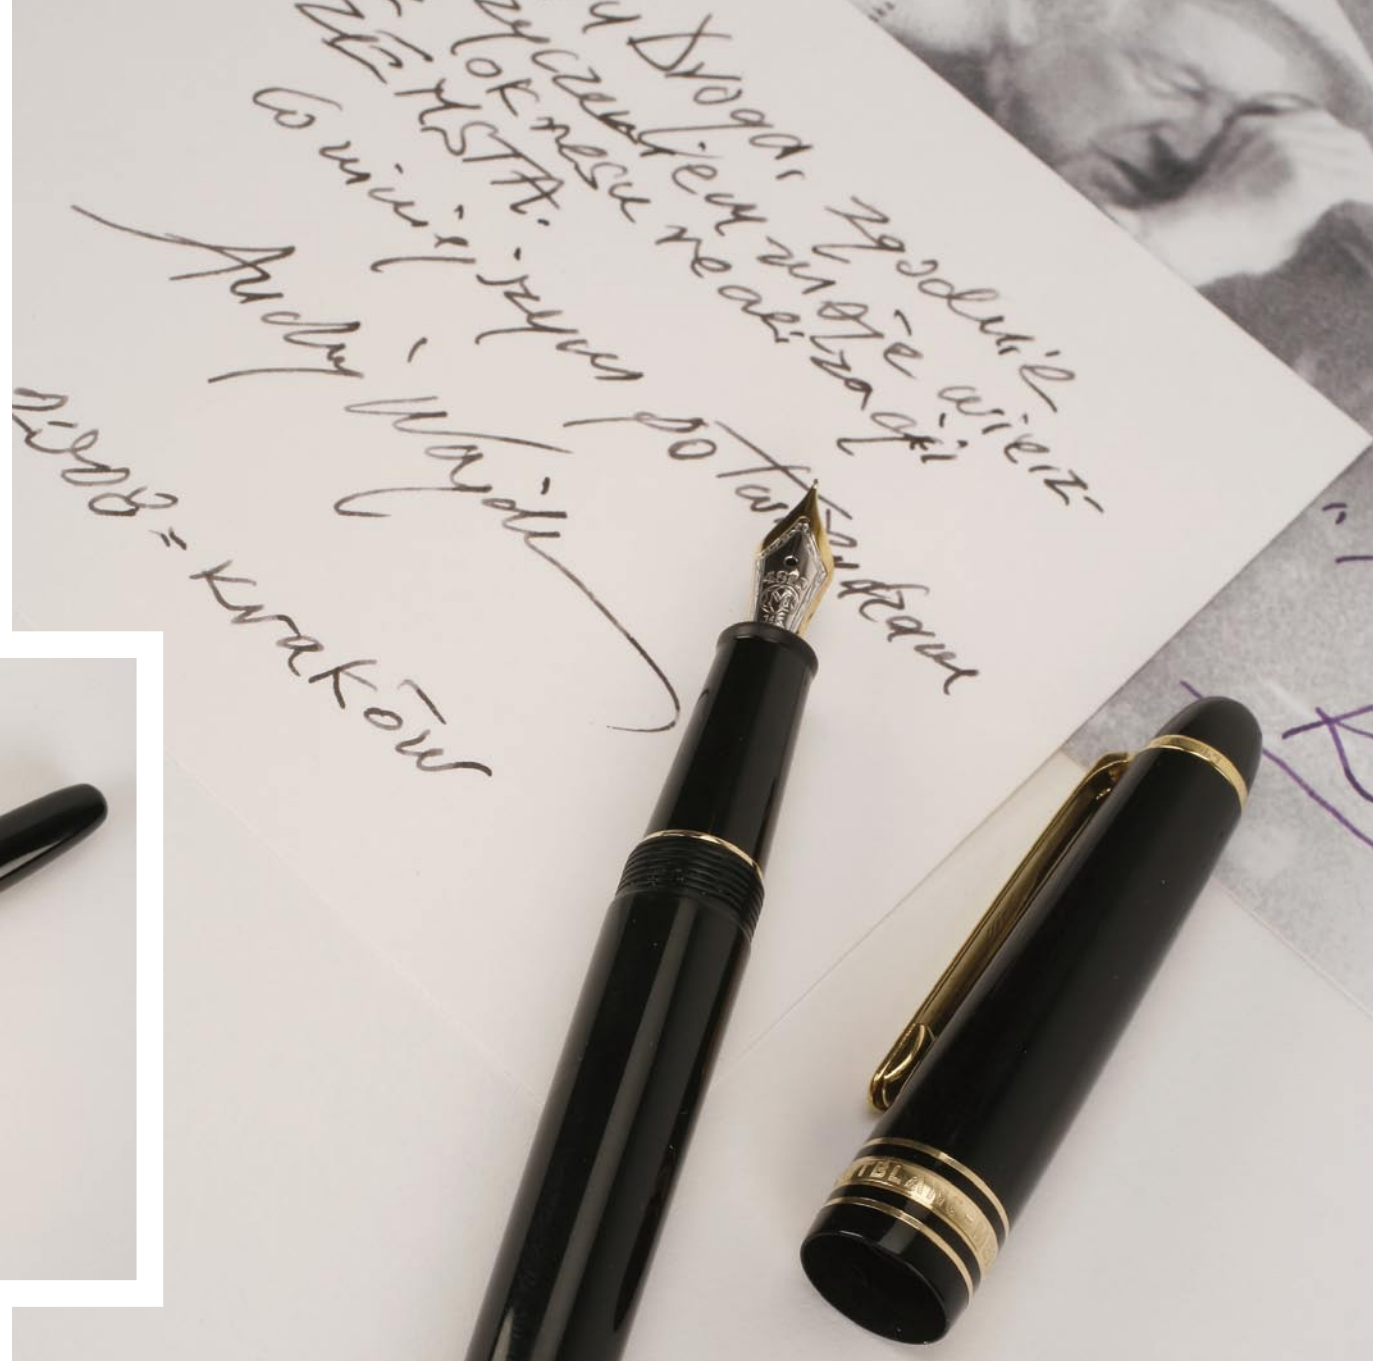 Droga, zgodnie
z życzeniem może wierz-
okresu realizacji
ZEMSTA.
Co niniejszym potwierdzam
Andrzej Wajda
2008 = Kraków
4810
M
TBLANC-ME